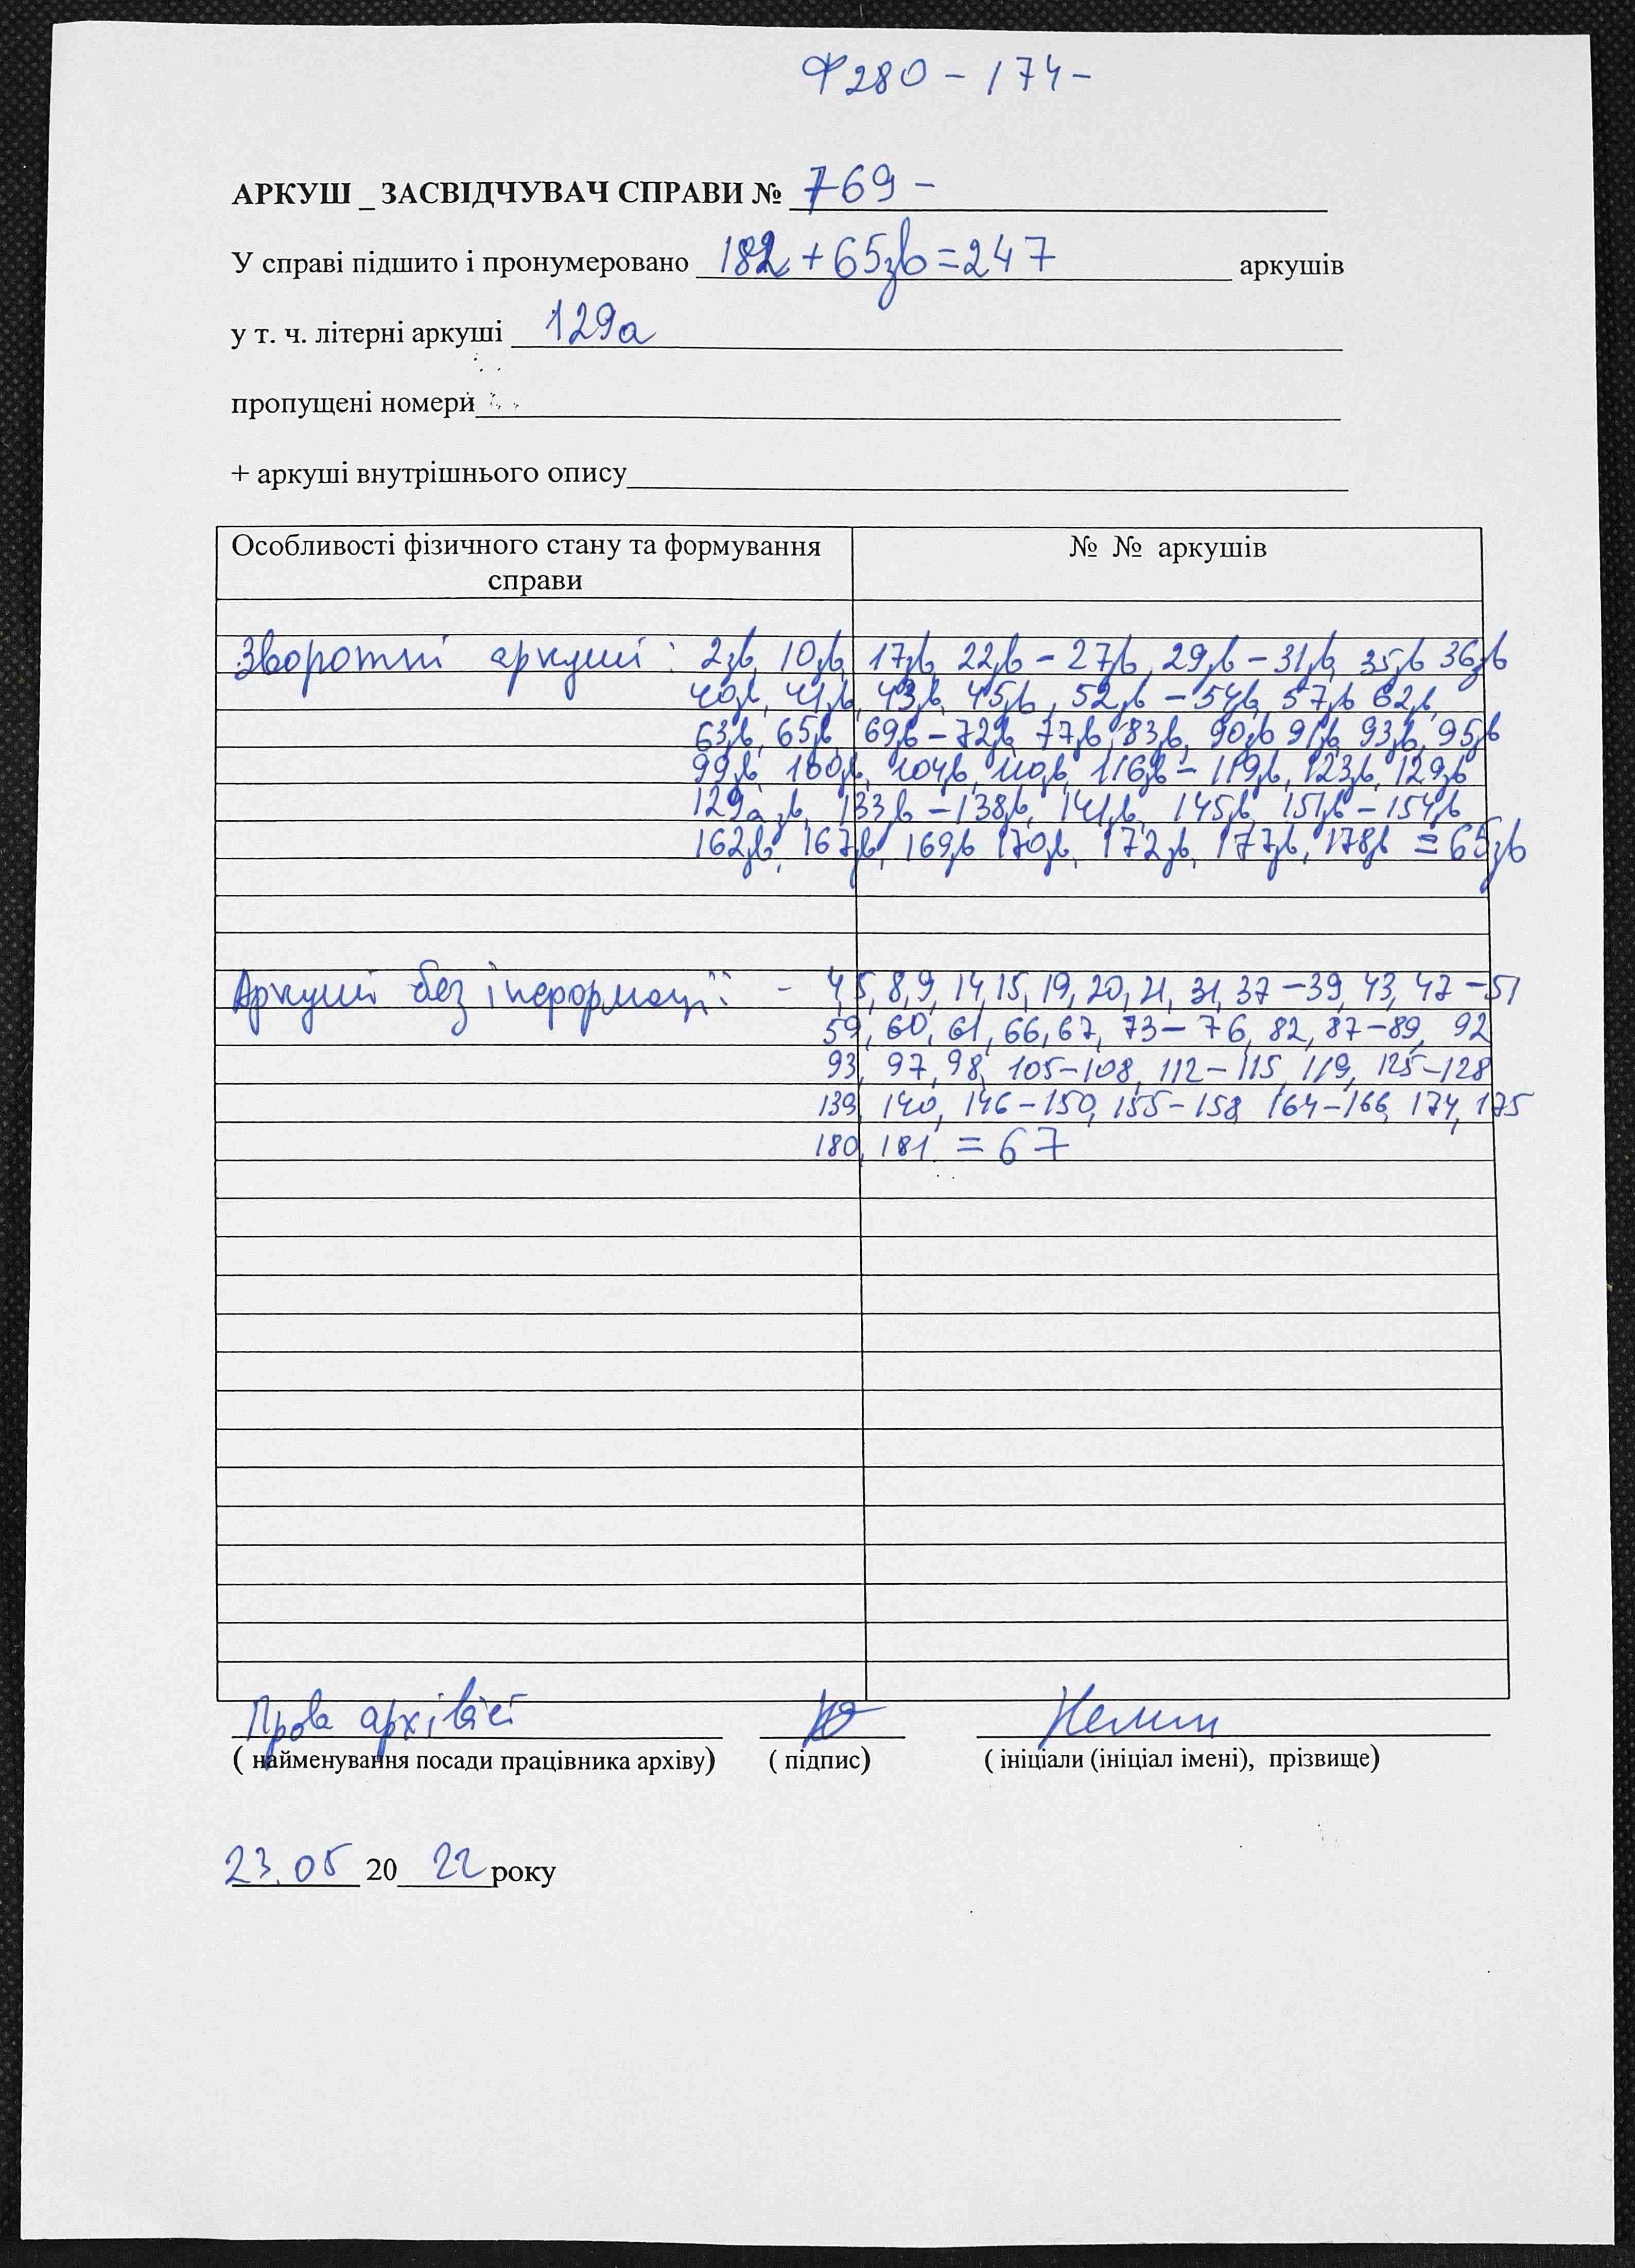 Ф 280 - 174 -
АРКУШ _ ЗАСВІДЧУВАЧ СПРАВИ № 769 -
У справі підшито і пронумеровано 182 + 65зв = 247 аркушів
у т. ч. літерні аркуші 129а
пропущені номери
+ аркуші внутрішнього опису
Особливості фізичного стану та формування справи № № аркушів
Зворотні аркуші : 2зв, 10зв, 17зв, 22зв - 27зв, 29зв - 31зв, 35зв 36зв
40зв, 41зв, 43зв, 45зв, 52зв - 54зв, 57зв 62зв,
63зв, 65зв, 69зв - 72зв, 77зв, 83зв, 90зв 91зв, 93зв, 95зв
99зв, 100зв, 104зв, 110зв, 116зв - 119зв, 123зв, 129зв
129а зв, 133зв - 138зв, 141зв, 145зв, 151зв - 154зв
162зв, 167зв, 169зв 170зв, 172зв, 177зв, 178зв = 65зв
Аркуші без інформації - 4, 5, 8, 9, 14, 15, 19, 20, 21, 31, 37 - 39, 43, 47 - 51
59, 60, 61, 66, 67, 73 - 76, 82, 87 - 89, 92
93, 97, 98, 105 - 108, 112 - 115, 119, 125 - 128
139, 140, 146 - 150, 155 - 158, 164 - 166, 174, 175
180, 181 = 67
Пров архівіст
( найменування посади працівника архіву) ( підпис) ( ініціали (ініціал імені), прізвище)
23.05 20 22 року